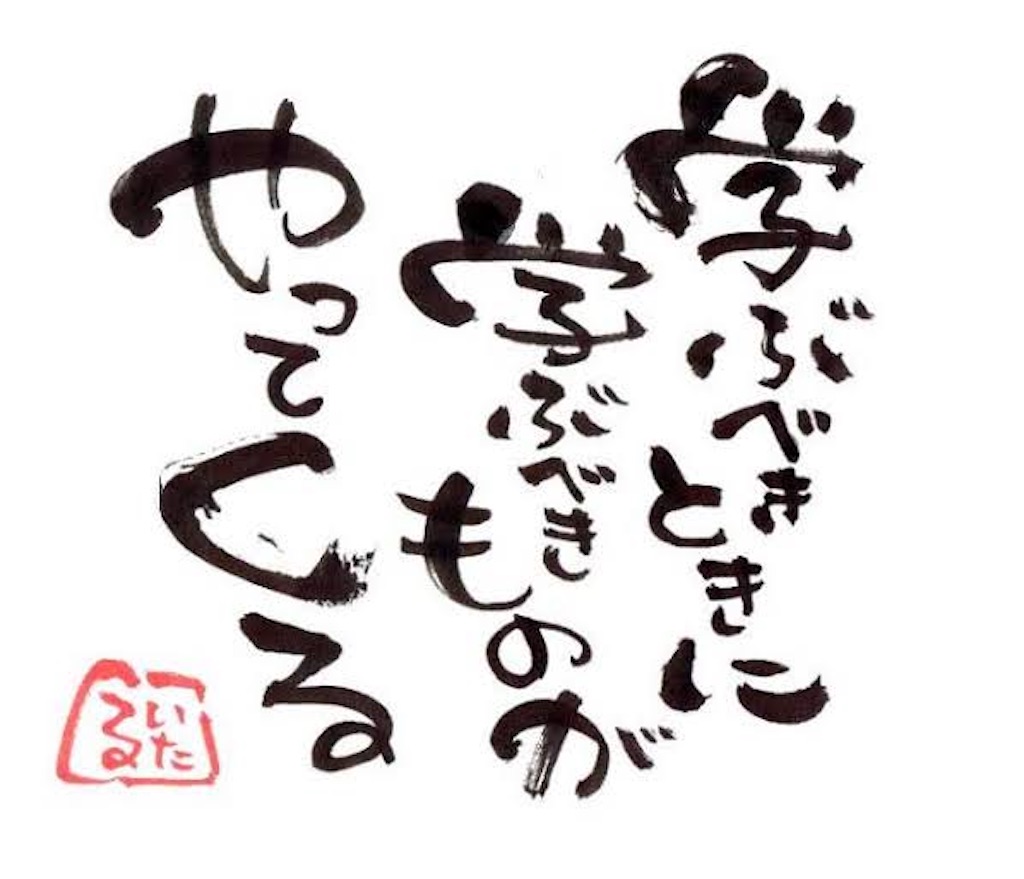 学ぶべきときに
学ぶべきものが
やってくる
いたる